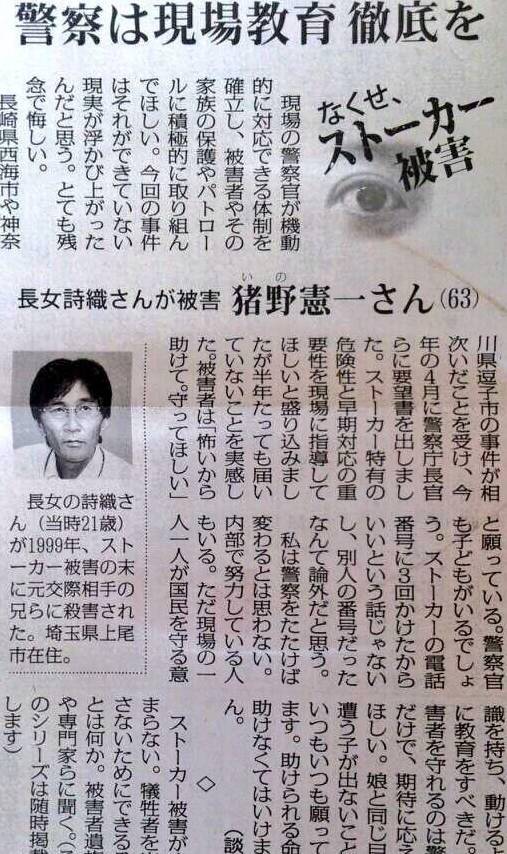 警察は現場教育 徹底を
なくせ、
ストーカー
被害
現場の警察官が機動
的に対応できる体制を
確立し、被害者やその
家族の保護やパトロー
ルに積極的に取り組ん
でほしい。今回の事件
はそれができていない
現実が浮かび上がった
んだと思う。とても残
念で悔しい。
長崎県西海市や神奈
長女詩織さんが被害 猪野憲一さん(63)
いの
川県逗子市の事件が相
次いだことを受け、今
年の4月に警察庁長官
らに要望書を出しまし
た。ストーカー特有の
危険性と早期対応の重
要性を現場に指導して
ほしいと盛り込みまし
たが半年たっても届い
ていないことを実感し
た。被害者は「怖いから
助けて。守ってほしい」
長女の詩織さ
ん(当時21歳)
が1999年、スト
ーカー被害の末
に元交際相手の
兄らに殺害され
た。埼玉県上尾
市在住。
と願っている。警察官
も子どもがいるでしょ
う。ストーカーの電話
番号に3回かけたから
いいという話じゃない
し、別人の番号だった
なんて論外だと思う。
私は警察をたたけば
変わるとは思わない。
内部で努力している人
もいる。ただ現場の一
人一人が国民を守る意
識を持ち、動けるよ
に教育をすべきだ。
害者を守れるのは警
だけで、期待に応え
ほしい。娘と同じ目
遭う子が出ないこと
いつもいつも願って
ます。助けられる命
助けなくてはいけま
ん。
(談
◇
ストーカー被害が
まらない。犠牲者を
さないためにできる
とは何か。被害者遺
や専門家らに聞く。(
のシリーズは随時掲
します)